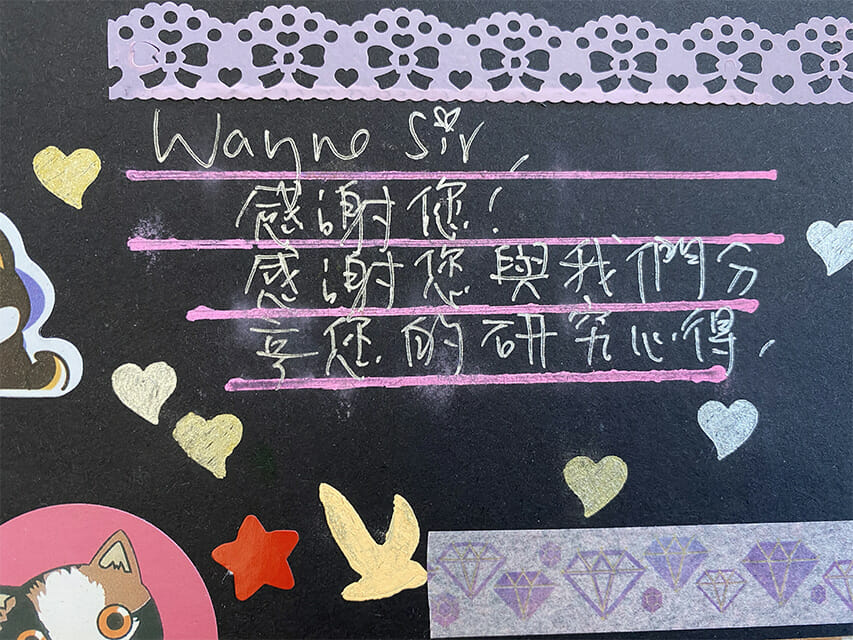 Wayne Sir,
感謝您!
感謝您與我們分
享您的研究心得,